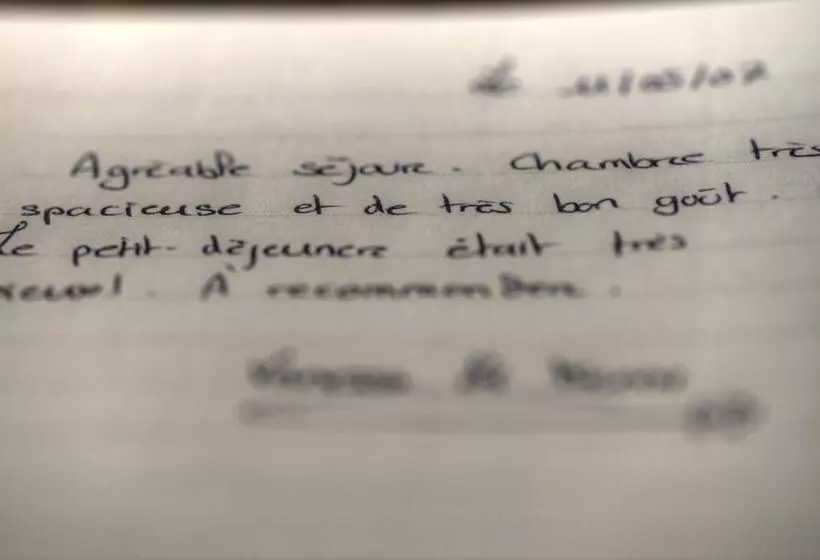 Agréable séjour. Chambre très
spacieuse et de très bon goût.
Le petit-déjeuner était très
À recommander.